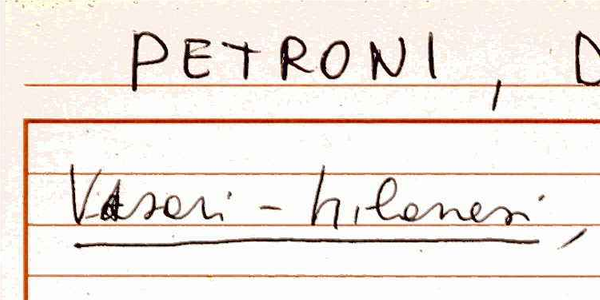 PETRONI, D
Vasari - Milanesi,